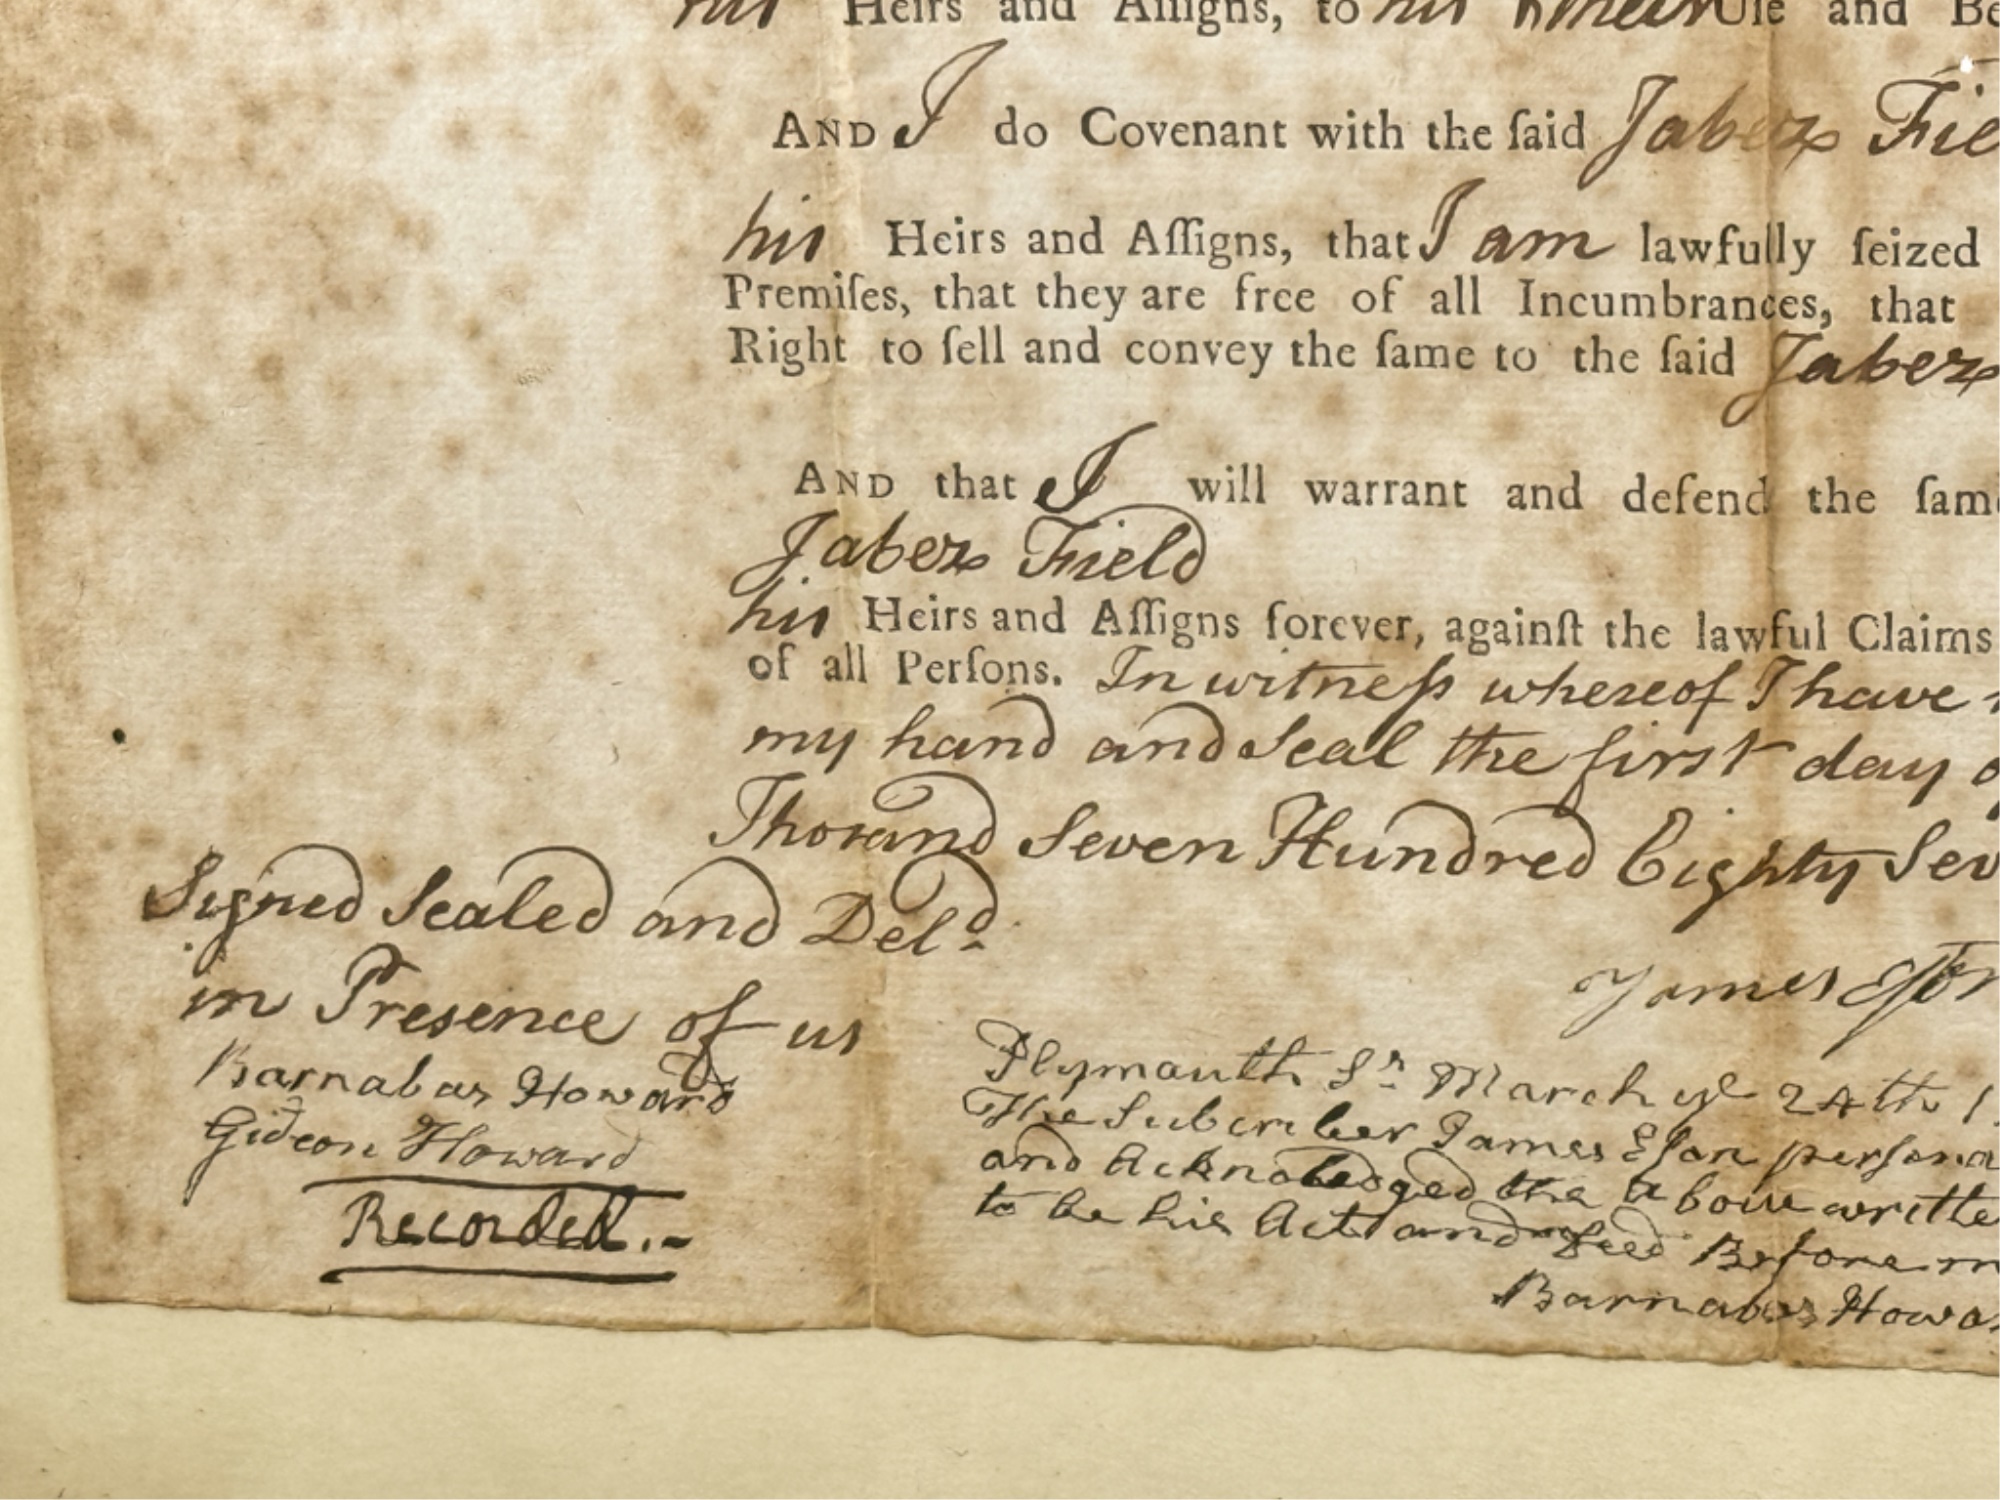 his Heirs and Aſſigns, to his Uſe and Be
AND I do Covenant with the ſaid Jabez Fie
his Heirs and Aſſigns, that I am lawfully ſeized
Premiſes, that they are free of all Incumbrances, that
Right to ſell and convey the ſame to the ſaid Jabez
AND that I will warrant and defend the ſam
Jabez Field
his Heirs and Aſſigns forever, againſt the lawful Claims
of all Perſons. In witneſs whereof I have
my hand and Seal the first day o
Thosand Seven Hundred Eighty Sev
Signed Sealed and Deld.
in Presence of us
James
Barnabas Howard
Gideon Howard
Recorded.-
Plymouth Ss March ye 24th 1
The Subcriber James Eſon perſona
and Acknoledged the above writte
to be his Act and Deed Before m
Barnabas Howa